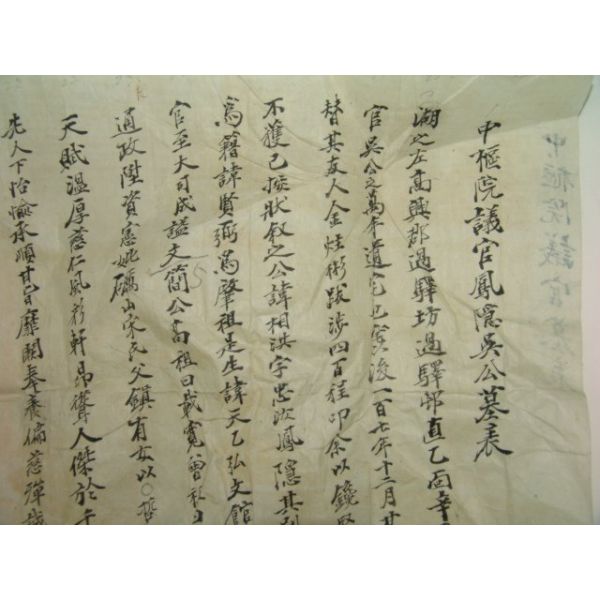 中樞院議官鳳隱吳公墓表
湖之左高興郡過驛坊過驛邨直乙面辛
官吳公之萬年道宅已窆後一百七年十二月其
替其友人金炷術跋涉四百程印余以鐫
不獲已按狀叙之公諱相洪字忠改鳳隱其
爲籍諱賢弼爲肇祖是生諱天乙弘文館
官至大司成謚文簡公高祖曰載寬曾祖曰
通政陞資憲妣礪山宋氏父鎭有女以○哲
天賦溫厚慈仁風彩軒昂聳人傑於
先人下怡愉承順甘旨靡闕奉養偏慈彈